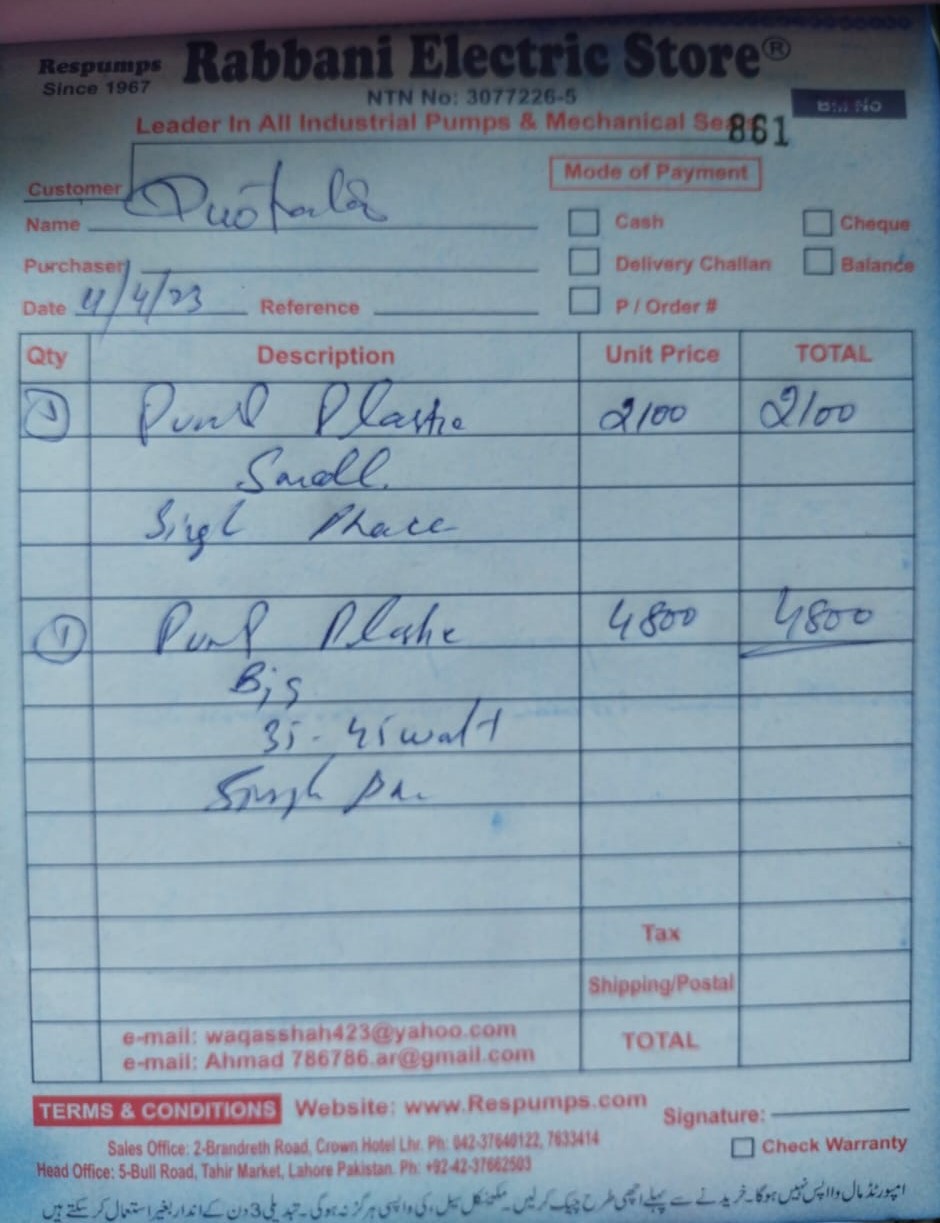 Respumps Rabbani Electric Store®
Since 1967
NTN No: 3077226-5
Bill No
Leader In All Industrial Pumps & Mechanical Se
861
Customer
Mode of Payment
Name
Cash Cheque
Purchaser
Delivery Challan Balance
Date 4/4/23 Reference
P / Order #
Qty Description Unit Price TOTAL
1 Pump Plastic 2100 2100
Small
Singl Phace
1 Pump Plastic 4800 4800
Big
35 - 45 watt
Singh
Tax
Shipping/Postal
e-mail: waqasshah423@yahoo.com
e-mail: Ahmad 786786.ar@gmail.com
TOTAL
TERMS & CONDITIONS Website: www.Respumps.com
Signature:
Sales Office: 2-Brandreth Road, Crown Hotel Lhr. Ph: 042-37640122, 7633414
Check Warranty
Head Office: 5-Bull Road, Tahir Market, Lahore Pakistan. Ph: +92-42-37662503
امپورٹڈ مال واپس نہیں ہوگا۔ خریدنے سے پہلے اچھی طرح چیک کرلیں۔ مکینیکل سیل، کی واپسی ہرگز نہ ہوگی۔ تبدیلی 3 دن کے اندر بغیر استعمال کر سکتے ہیں